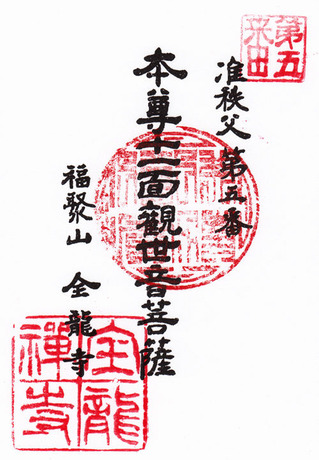 第五番
准秩父第五番
本尊十一面觀世音菩薩
福聚山 全龍寺
全龍禪寺